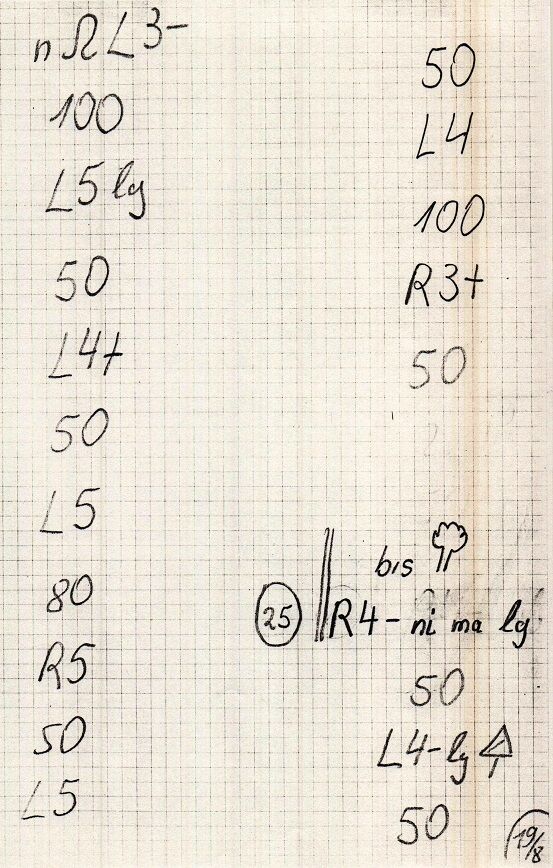 n Ω L3-
100
L5 lg
50
L4+
50
L5
80
R5
50
L5
50
L4
100
R3+
50
bis
25 R4- ni ma lg
50
L4- lg
50
19/8